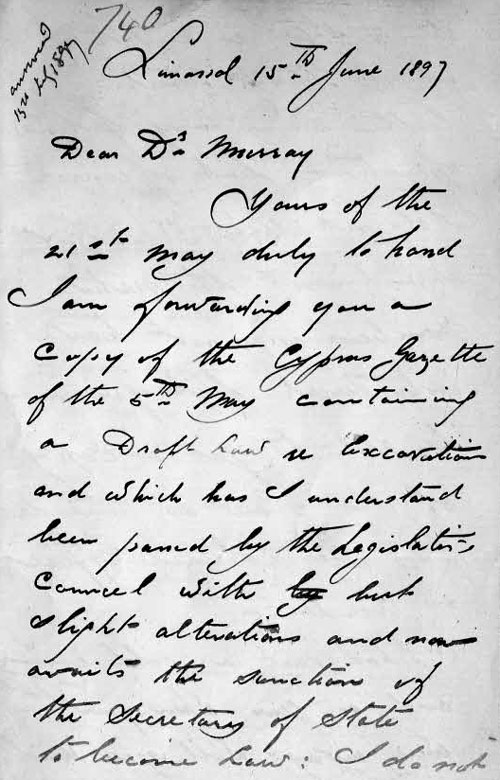 740
answered
Limassol 15th June 1897
Dear Dr Murray
Yours of the
21st May duly to hand
I am forwarding you a
Copy of the Cyprus Gazette
of the 5th May containing
a Draft Law re Excavations
and which has I understand
been passed by the Legislative
Council with by but
slight alterations and now
awaits the sanction of
the Secretary of State
to become Law: I do not